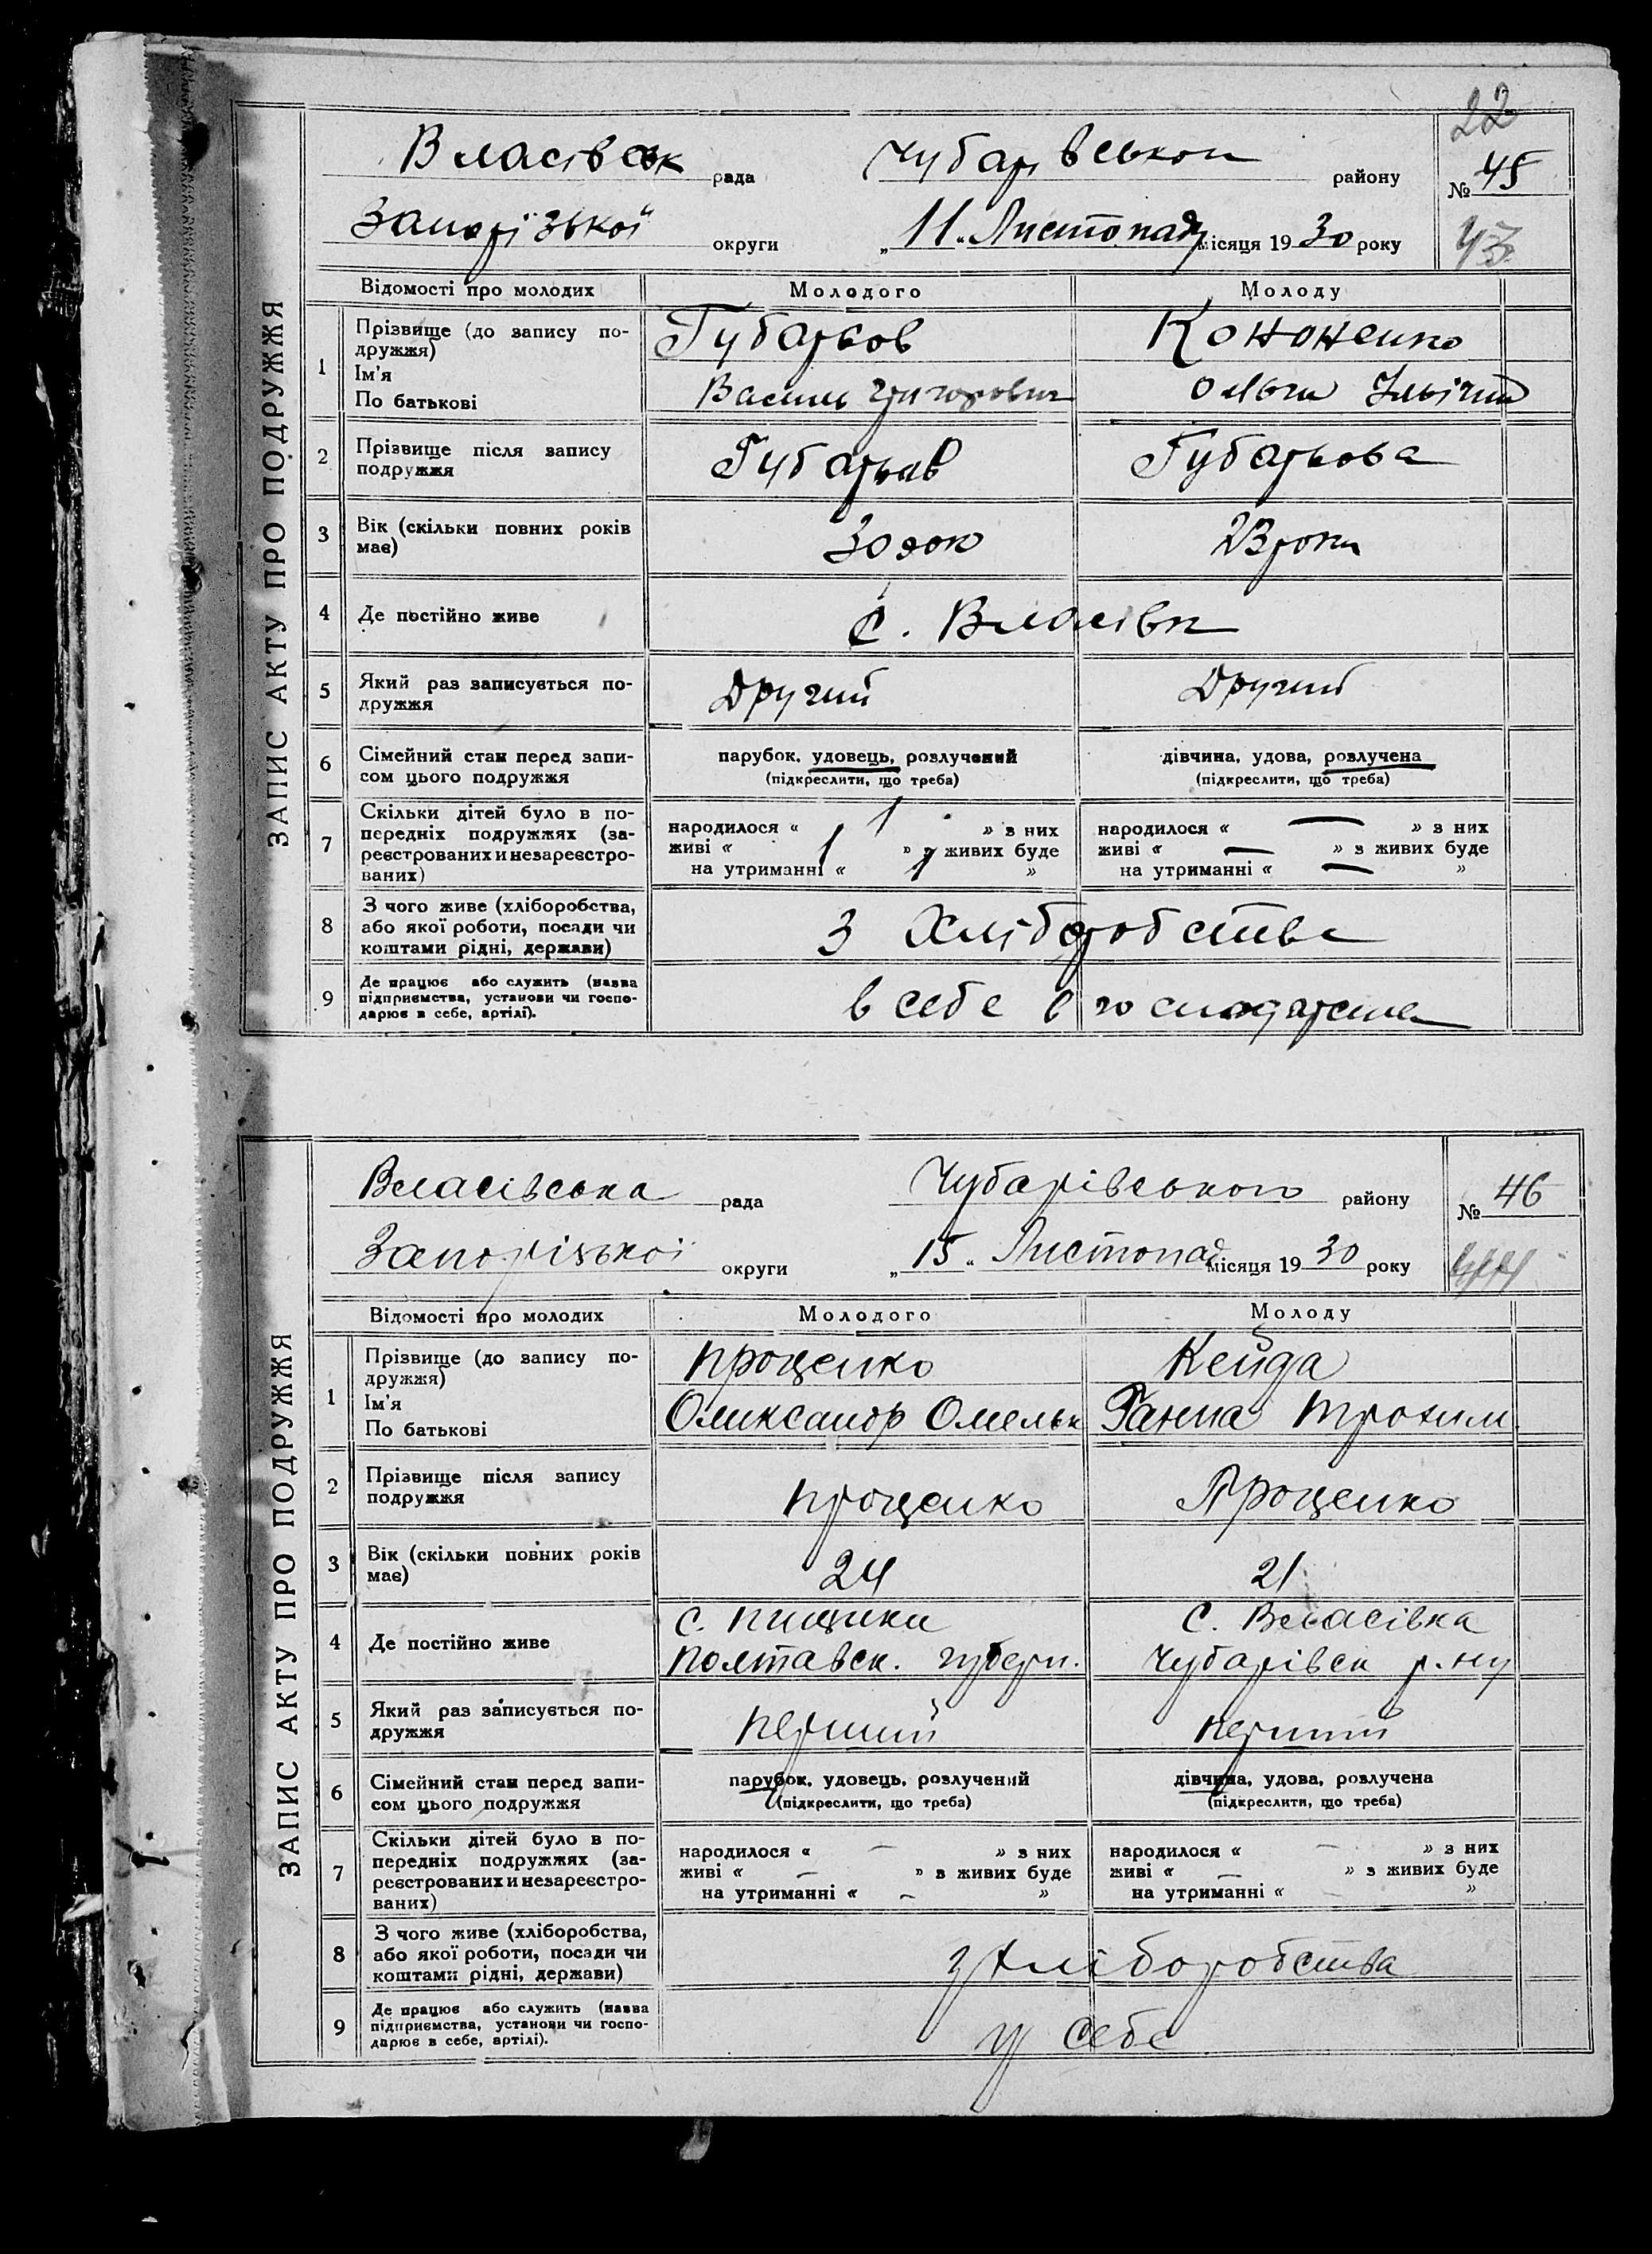 22
ЗАПИС АКТУ ПРО ПОДРУЖЖЯ
Власівськ рада Чубарівськ району № 45
Запорізької округи „11“ Листопад місяця 1930 року 43
Відомості про молодих Молодого Молоду
1 Прізвище (до запису по-
дружжя) Губарьов Кононенко
Ім'я
По батькові Василь Григорович Ольга Ільїчна
2 Прізвище після запису
подружжя Губарьов Губарьова
3 Вік (скільки повних років
має) 30 рок 23 роки
4 Де постійно живе с. Власівка
5 Який раз записується по-
дружжя Другий Другий
6 Сімейний стан перед запи-
сом цього подружжя парубок, удовець, розлучений дівчина, удова, розлучена
(підкреслити, що треба) (підкреслити, що треба)
7 Скільки дітей було в по-
передніх подружжях (за-
реєстрованих и незареєстро-
ваних)
народилося « 1 » з них народилося « — » з них
живі « 1 » з живих буде живі « — » з живих буде
на утриманні « 1 » на утриманні « — »
8 З чого живе (хліборобства,
або якої роботи, посади чи
коштами рідні, держави) З Хліборобства
9 Де працює або служить (назва
підприємства, установи чи госпо-
дарює в себе, артілі). в себе в
ЗАПИС АКТУ ПРО ПОДРУЖЖЯ
Власівська рада Чубарівського району № 46
Запорізької округи „15“ Листопад місяця 1930 року 44
Відомості про молодих Молодого Молоду
1 Прізвище (до запису по-
дружжя) Проценко Кейда
Ім'я
По батькові Олександр Омельк Ганна Трохим
2 Прізвище після запису
подружжя Проценко Проценко
3 Вік (скільки повних років
має) 24 21
4 Де постійно живе с. Пищики с. Власівка
Полтавск. губерн. Чубарівск р.ну
5 Який раз записується по-
дружжя перший перший
6 Сімейний стан перед запи-
сом цього подружжя парубок, удовець, розлучений дівчина, удова, розлучена
(підкреслити, що треба) (підкреслити, що треба)
7 Скільки дітей було в по-
передніх подружжях (за-
реєстрованих и незареєстро-
ваних)
народилося « — » з них народилося « — » з них
живі « — » з живих буде живі « — » з живих буде
на утриманні « — » на утриманні « — »
8 З чого живе (хліборобства,
або якої роботи, посади чи
коштами рідні, держави) з Хліборобства
9 Де працює або служить (назва
підприємства, установи чи госпо-
дарює в себе, артілі). у себе